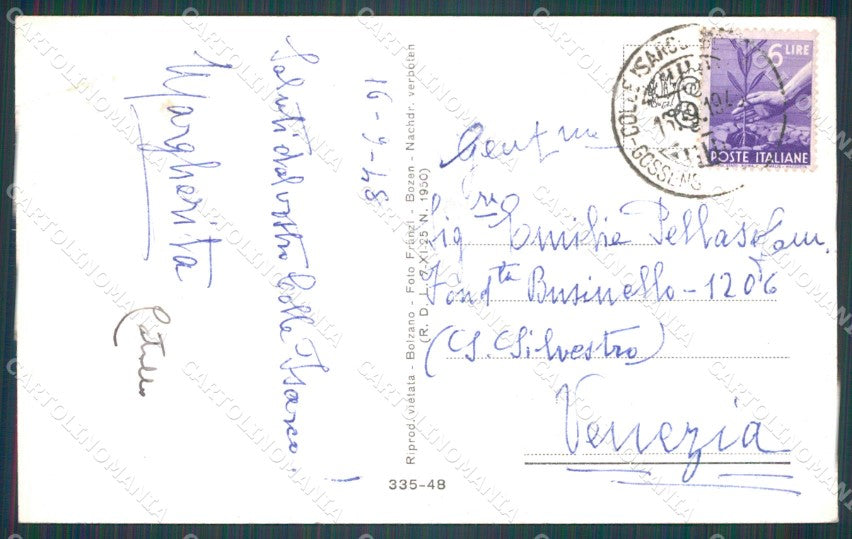 16-9-48
Saluti dal vostro Colle Isarco!
Margherita
Riprod. vietata - Bolzano - Foto Fränzl - Bozen - Nachdr. verboten
(R. D. L. 7-XI-25 N. 1950)
335-48
COLLE ISARCO
GOSSENS
6 LIRE
POSTE ITALIANE
Gent me
Sig. re Emilia
Fond ta Businello - 1206
(S. Silvestro)
Venezia
CARTOLINOMANIA